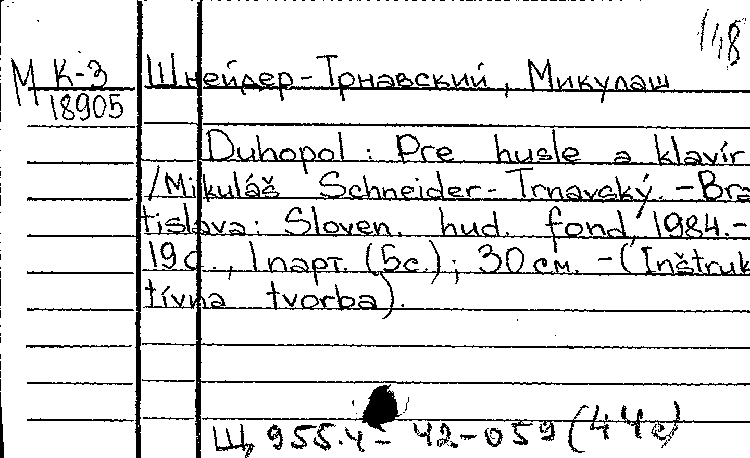 148
М К-3
18905
Шнейдер-Трнавский, Микулаш
Duhopol : Pre husle a klavír
/Mikuláš Schneider-Trnavský. -Bra
tislava: Sloven. hud. fond, 1984.-
19с., 1 парт. (5с.); 30 см. -(Inštruk
tívna tvorba).
Щ 955.4 - 42-059 (44е)